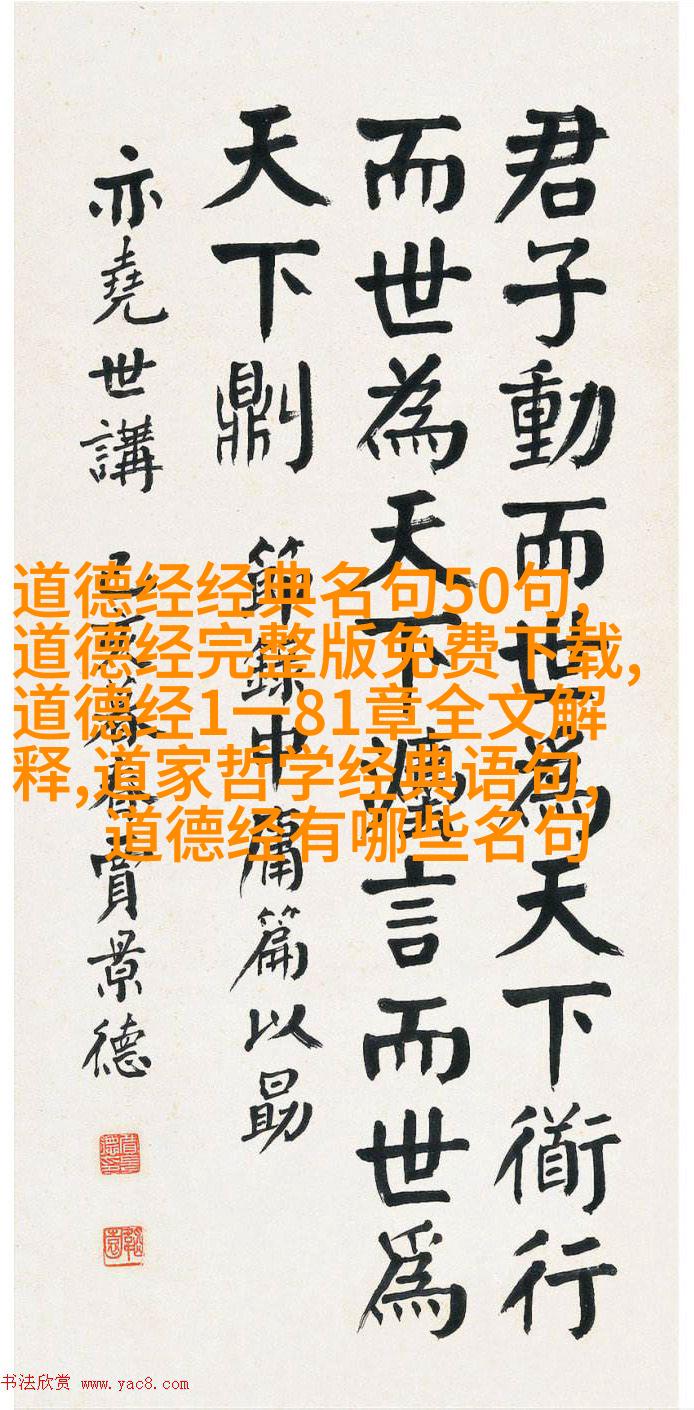 君子動而世為天下衜行
而世為天下灋言而世為
天下𠟭 節錄中庸篇以勗
亦堯世講 賈景德
道德经经典名句50句,
道德经完整版免费下载,
道德经1一81章全文解
释,道家哲学经典语句,
道德经有哪些名句
书法欣赏 www.yac8.com